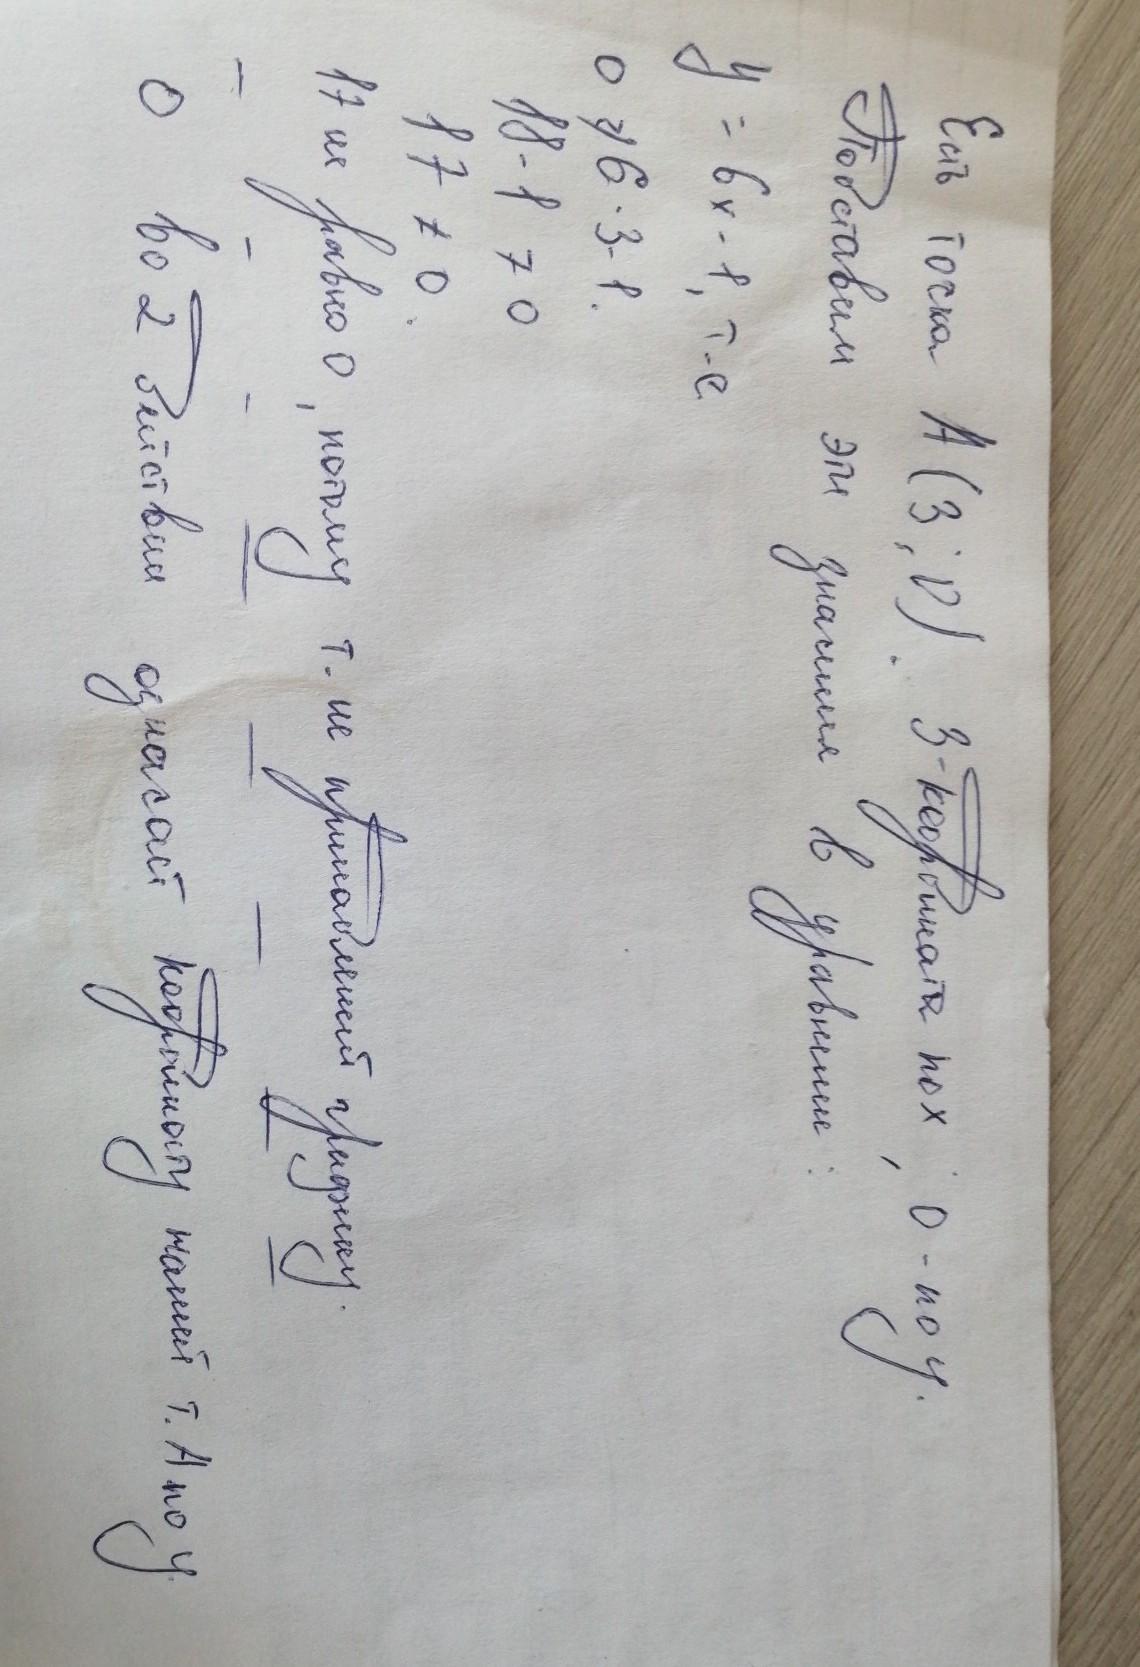 Есть точка А (3; 0). 3-координата по х, 0-по у.
Подставим эти значения в уравнение:
у = 6х-1, т.е
0 ≠ 6·3-1.
18-1 ≠ 0
17 ≠ 0.
17 не равно 0, потому т. не принадлежит графику.
0 во 2 действии означает координату нашей т. А по у.